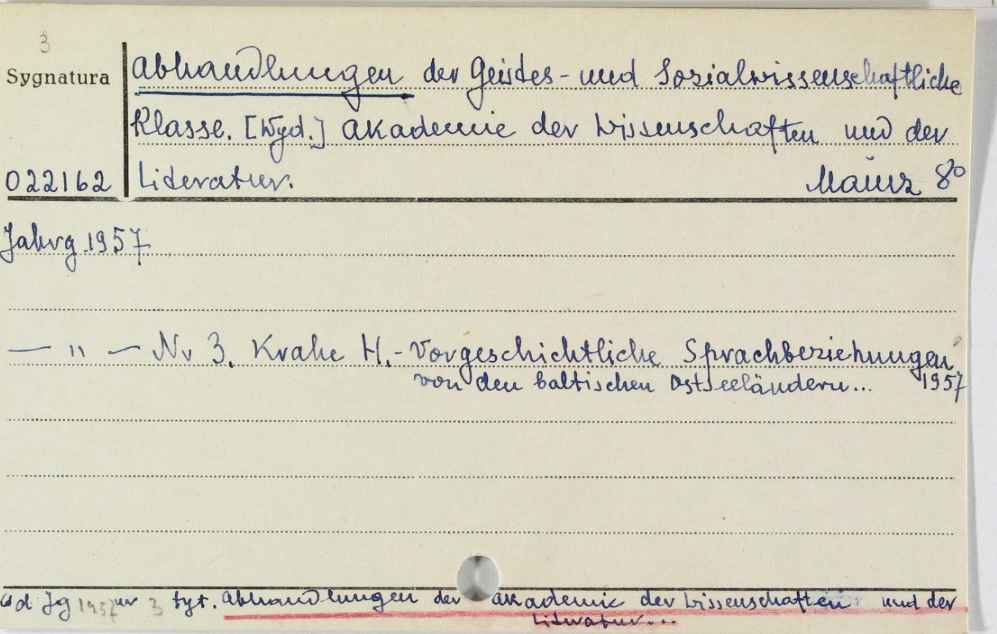 3
Sygnatura
Abhandlungen der Geistes- und Sozialwissenschaftliche
Klasse. [Wyd.] Akademie der Wissenschaften und der
022162 Literatur. Mainz 8°
Jahrg. 1957
— " — Nr 3. Krahe H. - Vorgeschichtliche Sprachbeziehungen
von den baltischen Ostseeländern... 1957
od Jg 1957 nr 3 tyt. Abhandlungen der Akademie der Wissenschaften und der
Literatur...